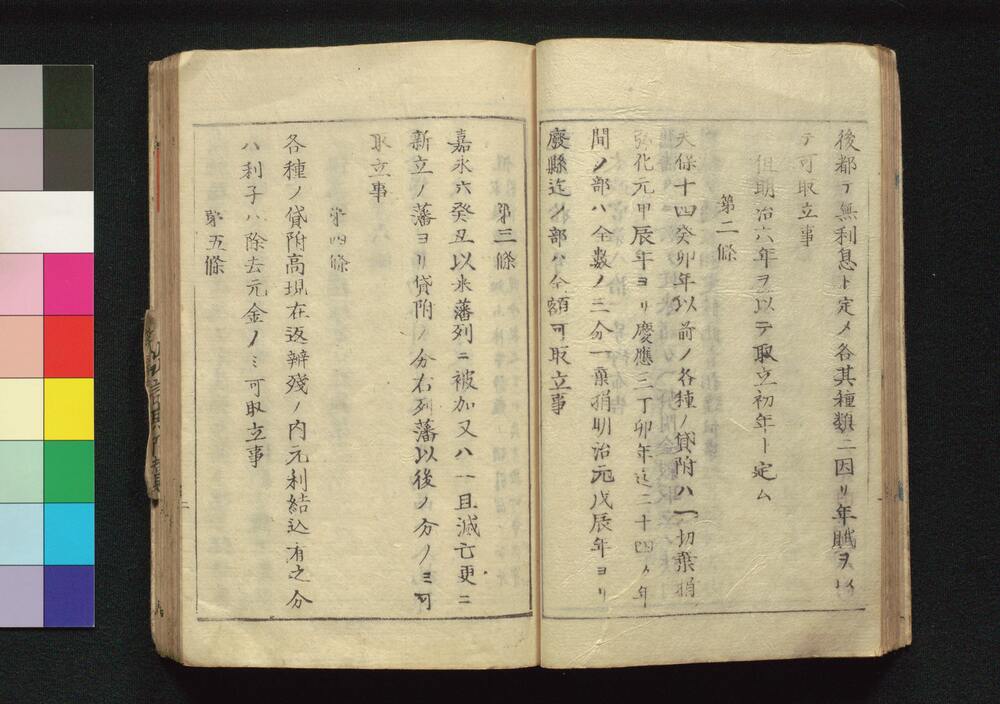 後都テ無利息ト定メ各其種類ニ因リ年賦ヲ以
テ可取立事
但明治六年ヲ以テ取立初年ト定ム
第二條
天保十四癸卯年以前ノ各種ノ貸附ハ一切棄捐
弘化元甲辰年ヨリ慶應三丁卯年迄二十四ヶ年
間ノ部ハ全数ノ三分一棄捐明治元戊辰年ヨリ
廢縣迄ノ部ハ全額可取立事
第三條
嘉永六癸丑以来藩列ニ被加又ハ一且滅亡更ニ
新立ノ藩ヨリ貸附ノ分右列藩以後ノ分ノミ可
取立事
第四條
各種ノ貸附高現在返辨残ノ内元利結込有之分
ハ利子ハ除去元金ノミ可取立事
第五條